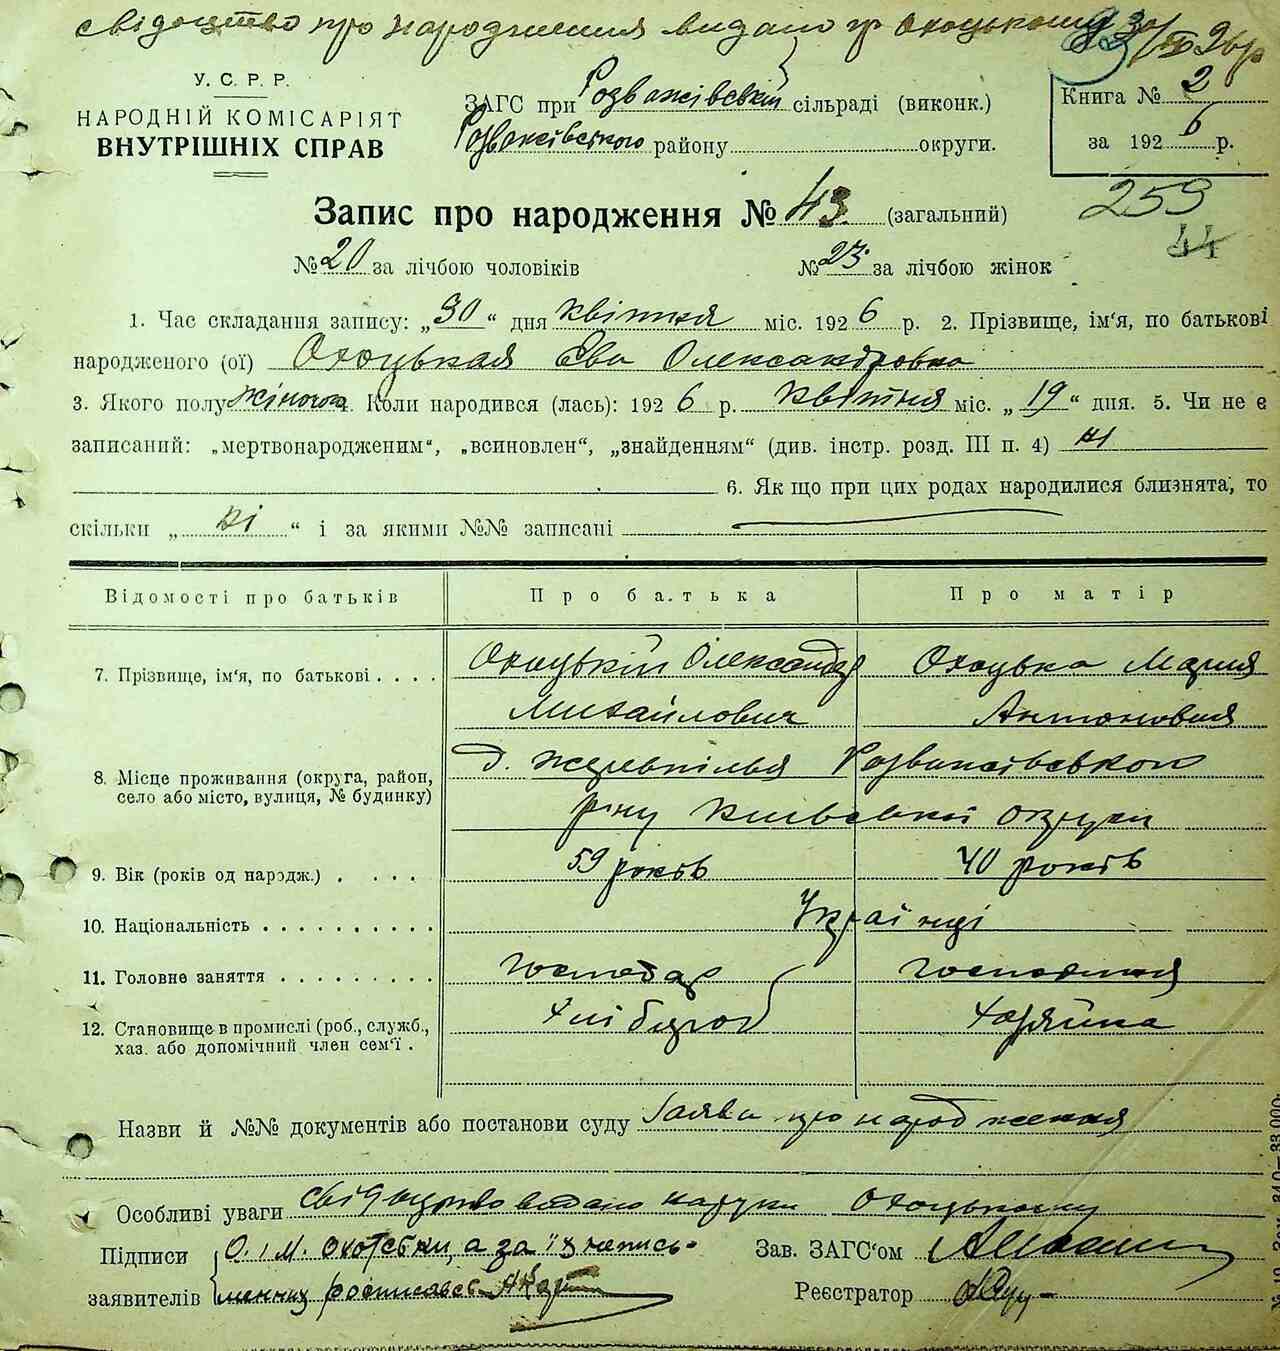 свідоцтво про народження видано гр Охоцькому 30/IV 26 р
У.С.Р.Р.
НАРОДНІЙ КОМІСАРІЯТ
ВНУТРІШНІХ СПРАВ
ЗАГС при Розважівській сільраді (виконк.)
Розважівського району округи.
Книга № 2
за 1926 р.
Запис про народження № 43. (загальний)
259
44
№ 20 за лічбою чоловіків № 23 за лічбою жінок
1. Час складання запису: „30“ дня квітня міс. 1926 р. 2. Прізвище, ім'я, по батькові
народженого (ої) Охоцькая Ева Олександровна
3. Якого полу жіночого 4. Коли народився (лась): 1926 р. квітня міс. „19“ дня. 5. Чи не є
записаний: „мертвонародженим“, „всиновлен“, „знайденням“ (див. інстр. розд. III п. 4) ні
6. Як що при цих родах народилися близнята, то
скільки „ні“ і за якими №№ записані
Відомості про батьків Про батька Про матір
7. Прізвище, ім'я, по батькові . . . . Охоцький Олександр Охоцька Мария
Михайлович Антоновна
8. Місце проживання (округа, район,
село або місто, вулиця, № будинку)
д. Жеревпілья Розважівського
р-ну Київської округи
9. Вік (років од народж.) . . . . 59 років 40 років
10. Національність . . . . . . . . . . Українці
11. Головне заняття . . . . . . . . . Господар Господиня
12. Становище в промислі (роб., служб.,
хаз. або допомічний член сем'ї .
Хлібороб Хазяйка
Назви й №№ документів або постанови суду Заява про народження
Особливі уваги свідоцтво видано на руки Охоцькому
Підписи
заявителів
О. і М. Охотськи, а за їх неписьменних росписався
Зав. ЗАГС'ом
Реєстратор